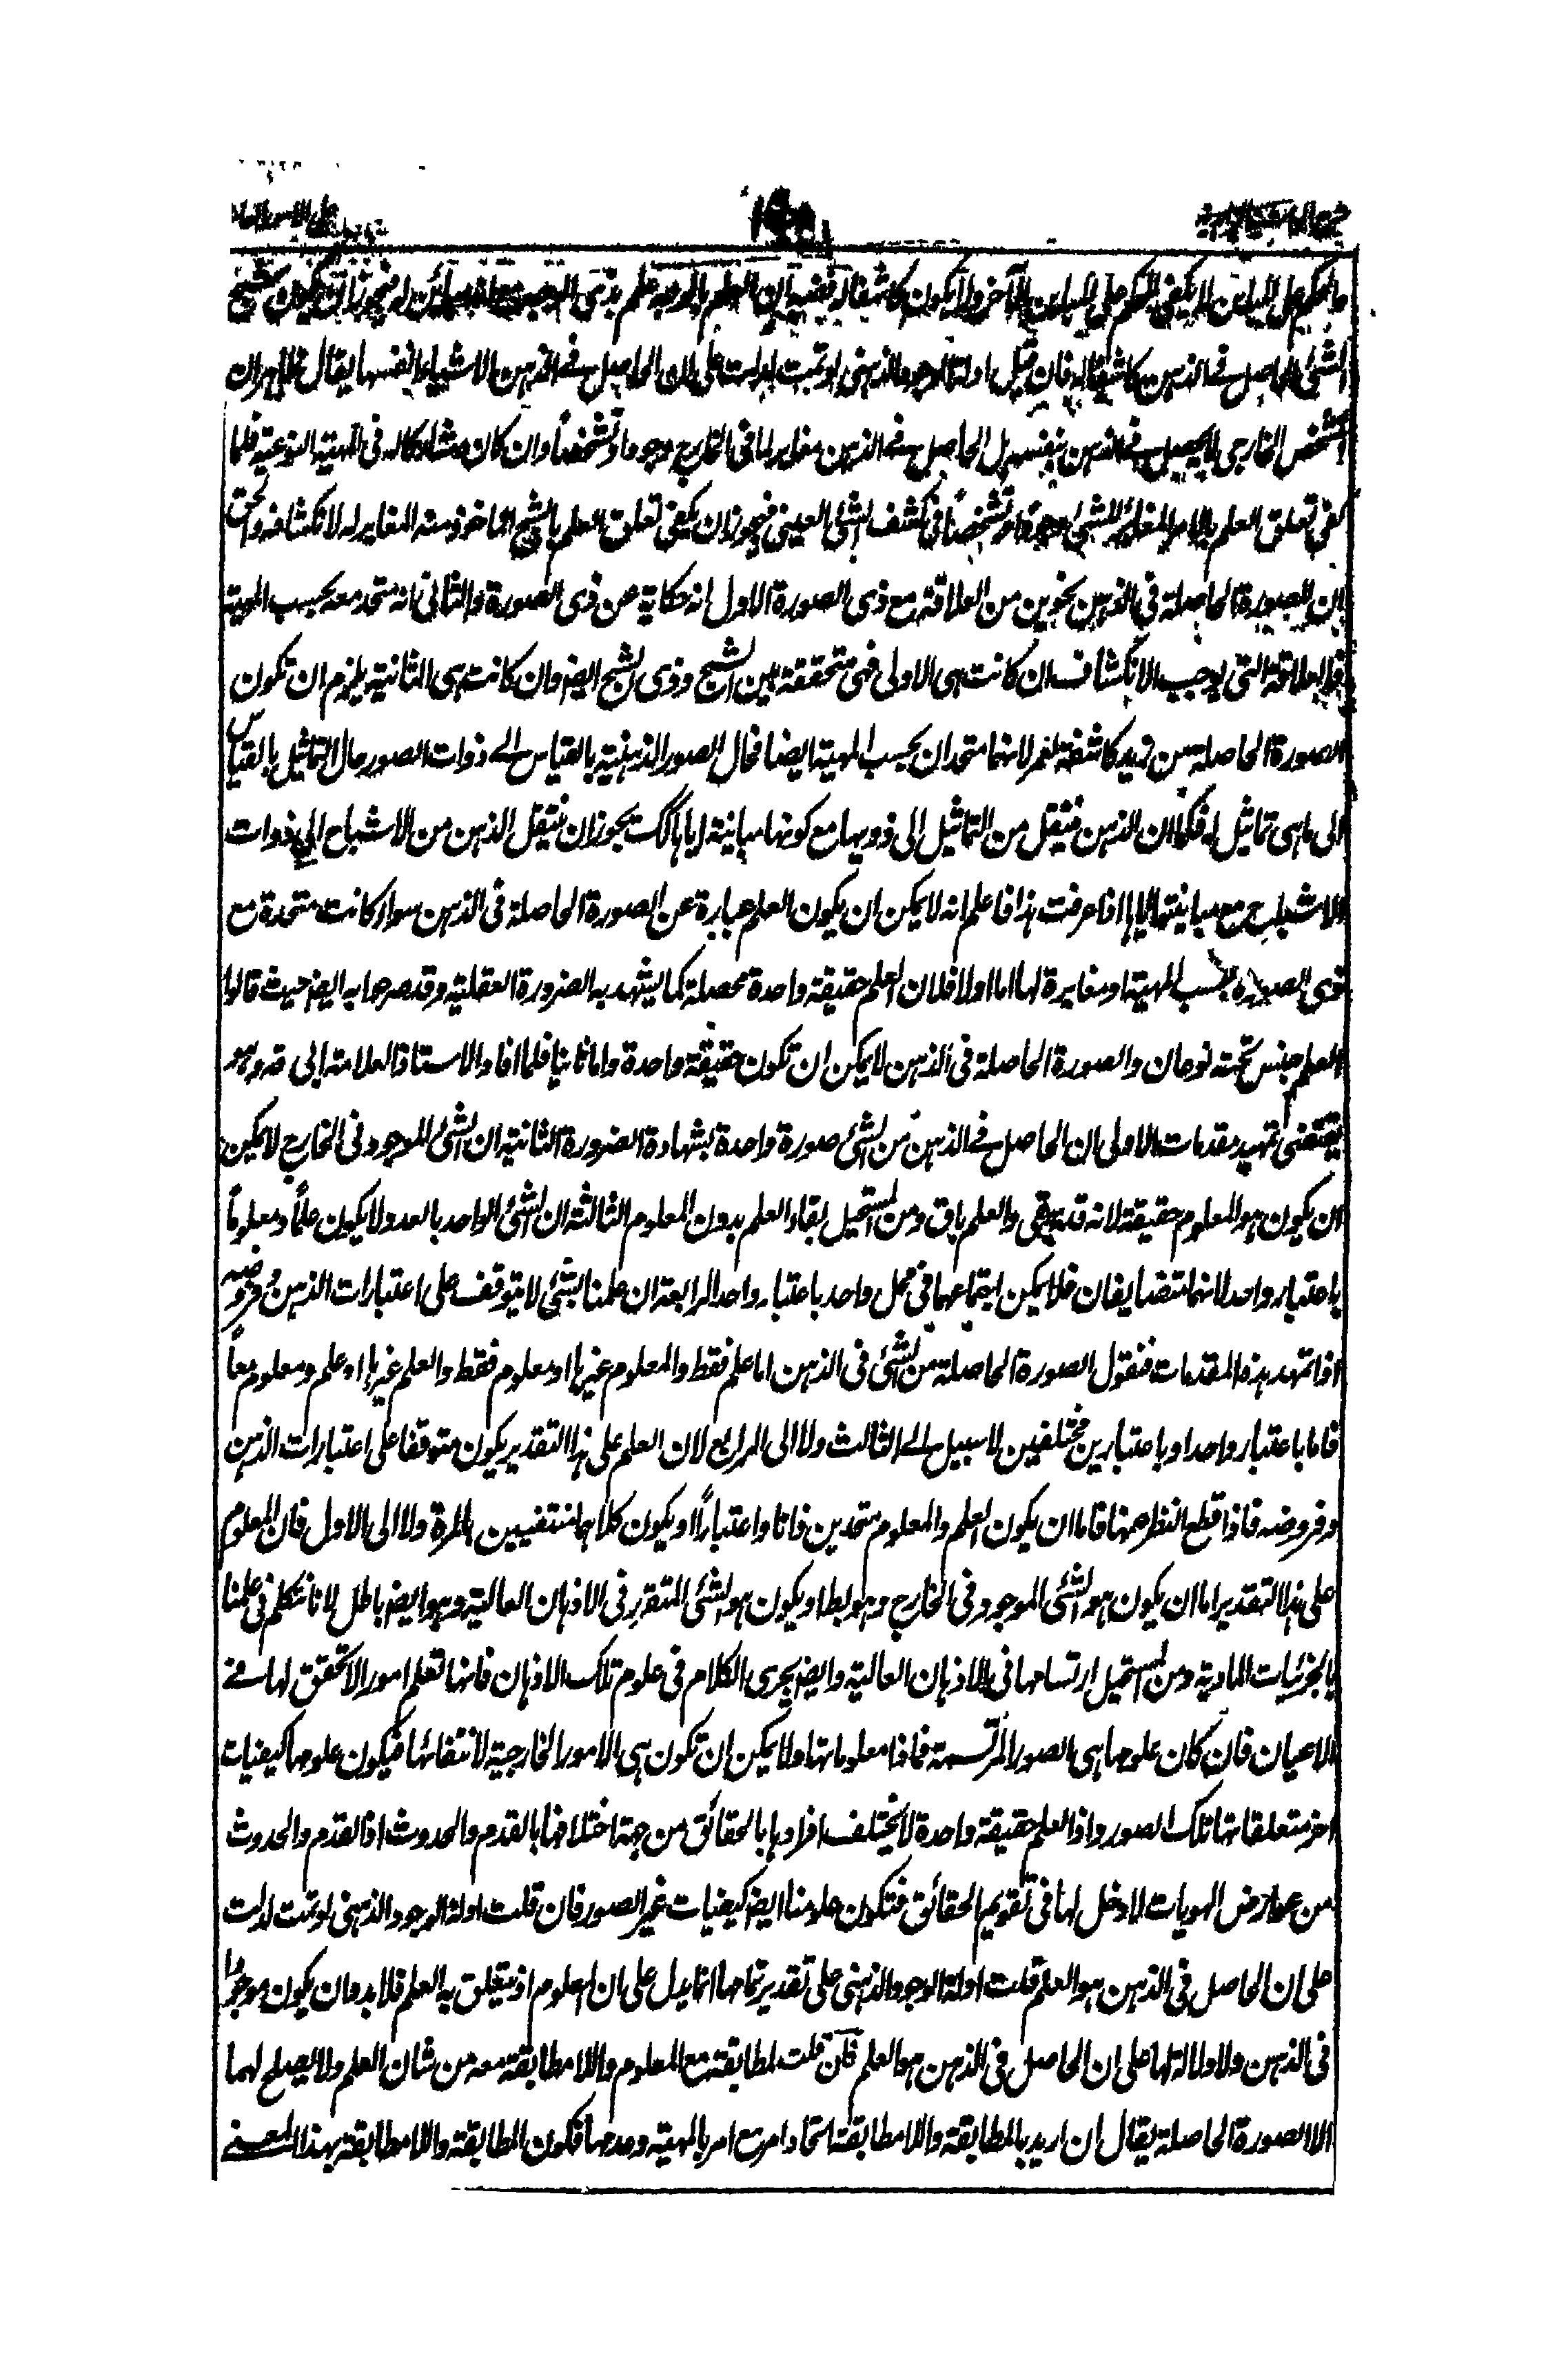 والحكم على المباين لا يكفى للحكم على المباين الآخر ولا يكون كاشفا له ففيه ان العلم بالوجه علم بذى الوجه فيجوز ان يكون شبح
الشئ الحاصل فى الذهن كاشفا له فان قيل ادلة الوجود الذهنى لو تمت لدلت على ان الحاصل فى الذهن الاشياء انفسها يقال ظاهر ان
الشخص الخارجى لا يحصل فى الذهن بنفسه بل الحاصل فى الذهن مغاير لما فى الخارج وجودا وتشخصا وان كان مشاركا له فى المهية النوعية فلما
كفى تعلق العلم بالامر المغاير للشئ وجودا وتشخصا فى كشف الشئ العينى فيجوز ان يكفى تعلق العلم بالشبح الماخوذ منه المغاير له لانكشافه والحق
ان الصورة الحاصلة فى الذهن نحوين من العلاقة مع ذى الصورة الاول انه حكاية عن ذى الصورة والثانى انه متحد معه بحسب المهية
فالعلاقة التى يوجب الانكشاف ان كانت هى الاولى فهى متحققة بين الشبح وذى الشبح ايضا وان كانت هى الثانية يلزم ان تكون
الصورة الحاصلة من زيد كاشفة لعمر لانهما متحدان بحسب المهية ايضا فحال الصور الذهنية بالقياس الى ذوات الصور حال التماثيل بالقياس
الى ما هى تماثيل له فكما ان الذهن ينتقل من التماثيل الى ذويها مع كونها مباينة اياها كك يجوز ان ينتقل الذهن من الاشباح الى ذوات
الاشباح مع مباينتها اياها اذا عرفت هذا فاعلم انه لا يمكن ان يكون العلم عبارة عن الصورة الحاصلة فى الذهن سواء كانت متحدة مع
ذوى الصورة بحسب المهية او مغايرة لها اما اولا فلان العلم حقيقة واحدة محصلة كما يشهد به الضرورة العقلية وقد صرحوا به ايضا حيث قالوا
العلم جنس تحته نوعان والصورة الحاصلة فى الذهن لا يمكن ان تكون حقيقة واحدة واما ثانيا فلما افاد الاستاذ العلامة ابى قدوسره
يقتضى تمهيد مقدمات الاولى ان الحاصل فى الذهن من الشئ صورة واحدة بشهادة الضرورة الثانية ان الشئ الموجود فى الخارج لا يمكن
ان يكون هو المعلوم حقيقة لانه قد ينتفى والعلم باق ومن المستحيل بقاء العلم بدون المعلوم الثالثة ان الشئ الواحد بالعدد لا يكون علما ومعلوما
باعتبار واحد لانهما متضايفان فلا يمكن اجتماعهما فى محل واحد باعتبار واحد الرابعة ان علمنا بشئ لا يتوقف على اعتبارات الذهن وفروضه
اذا تمهد هذه المقدمات فنقول الصورة الحاصلة من الشئ فى الذهن اما علم فقط والمعلوم غيرها او معلوم فقط والعلم غيرها او علم ومعلوم معا
فاما باعتبار واحد او باعتبارين مختلفين لا سبيل الى الثالث ولا الى الرابع لان العلم على هذا التقدير يكون متوقفا على اعتبارات الذهن
وفروضه فاذا قطع النظر عنها فاما ان يكون العلم والمعلوم متحدين ذاتا واعتبارا او يكون كلاهما منتفيين بالمرة ولا الى الاول فان المعلوم
على هذا التقدير اما ان يكون هو الشئ الموجود فى الخارج وهو بط او يكون هو الشئ المتقرر فى الاذهان العالية وهو ايضا باطل لانا نتكلم فى علمنا
بالجزئيات المادية ومن المستحيل ارتسامها فى الاذهان العالية وايضا يجرى الكلام فى علوم تلك الاذهان فانها تعلم امورا لا تحقق لها فى
الاعيان فان كان علومها هى الصور المرتسمة فاذا معلوماتها ولا يمكن ان تكون هى الامور الخارجية لانتفائها فيكون علومها كيفيات
اخر متعلقاتها تلك الصور واذ العلم حقيقة واحدة لا يختلف افرادها بالحقائق من جهة اختلافها بالقدم والحدوث اذ القدم والحدوث
من عوارض الهويات لا دخل لها فى تقويم الحقائق فتكون علومنا ايضا كيفيات غير الصور فان قلت ادلة الوجود الذهنى لو تمت لدلت
على ان الحاصل فى الذهن هو العلم قلت ادلة الوجود الذهنى على تقدير تمامها انما يدل على ان المعلوم اذ يتعلق به العلم فلا بد وان يكون موجودا
فى الذهن ولا دلالة لها على ان الحاصل فى الذهن هو العلم فان قلت المطابقة مع المعلوم واللا مطابقة معه من شان العلم ولا يصلح لهما
الا الصورة الحاصلة يقال ان اريد بالمطابقة واللا مطابقة اتحاد امر مع امر بالمهية وعدمها فكون المطابقة واللا مطابقة بهذا المعنى